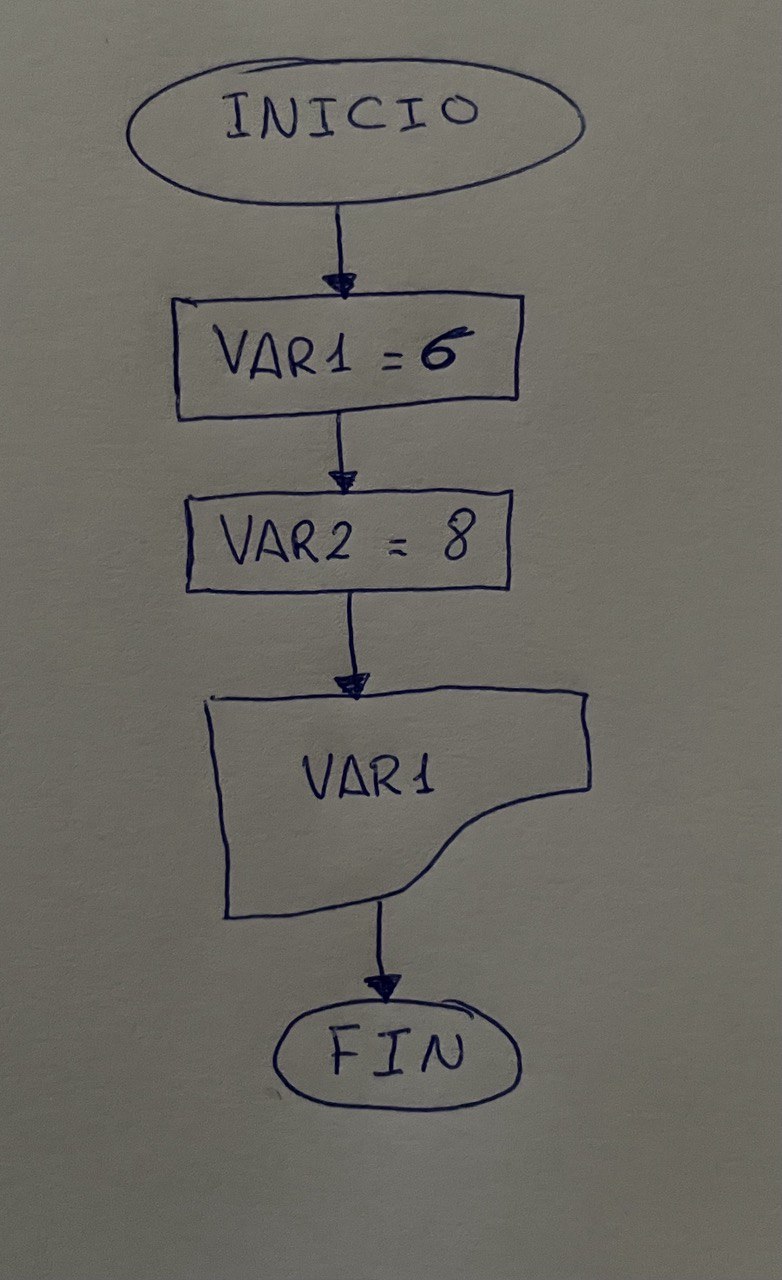 INICIO
VAR1 = 6
VAR2 = 8
VAR1
FIN